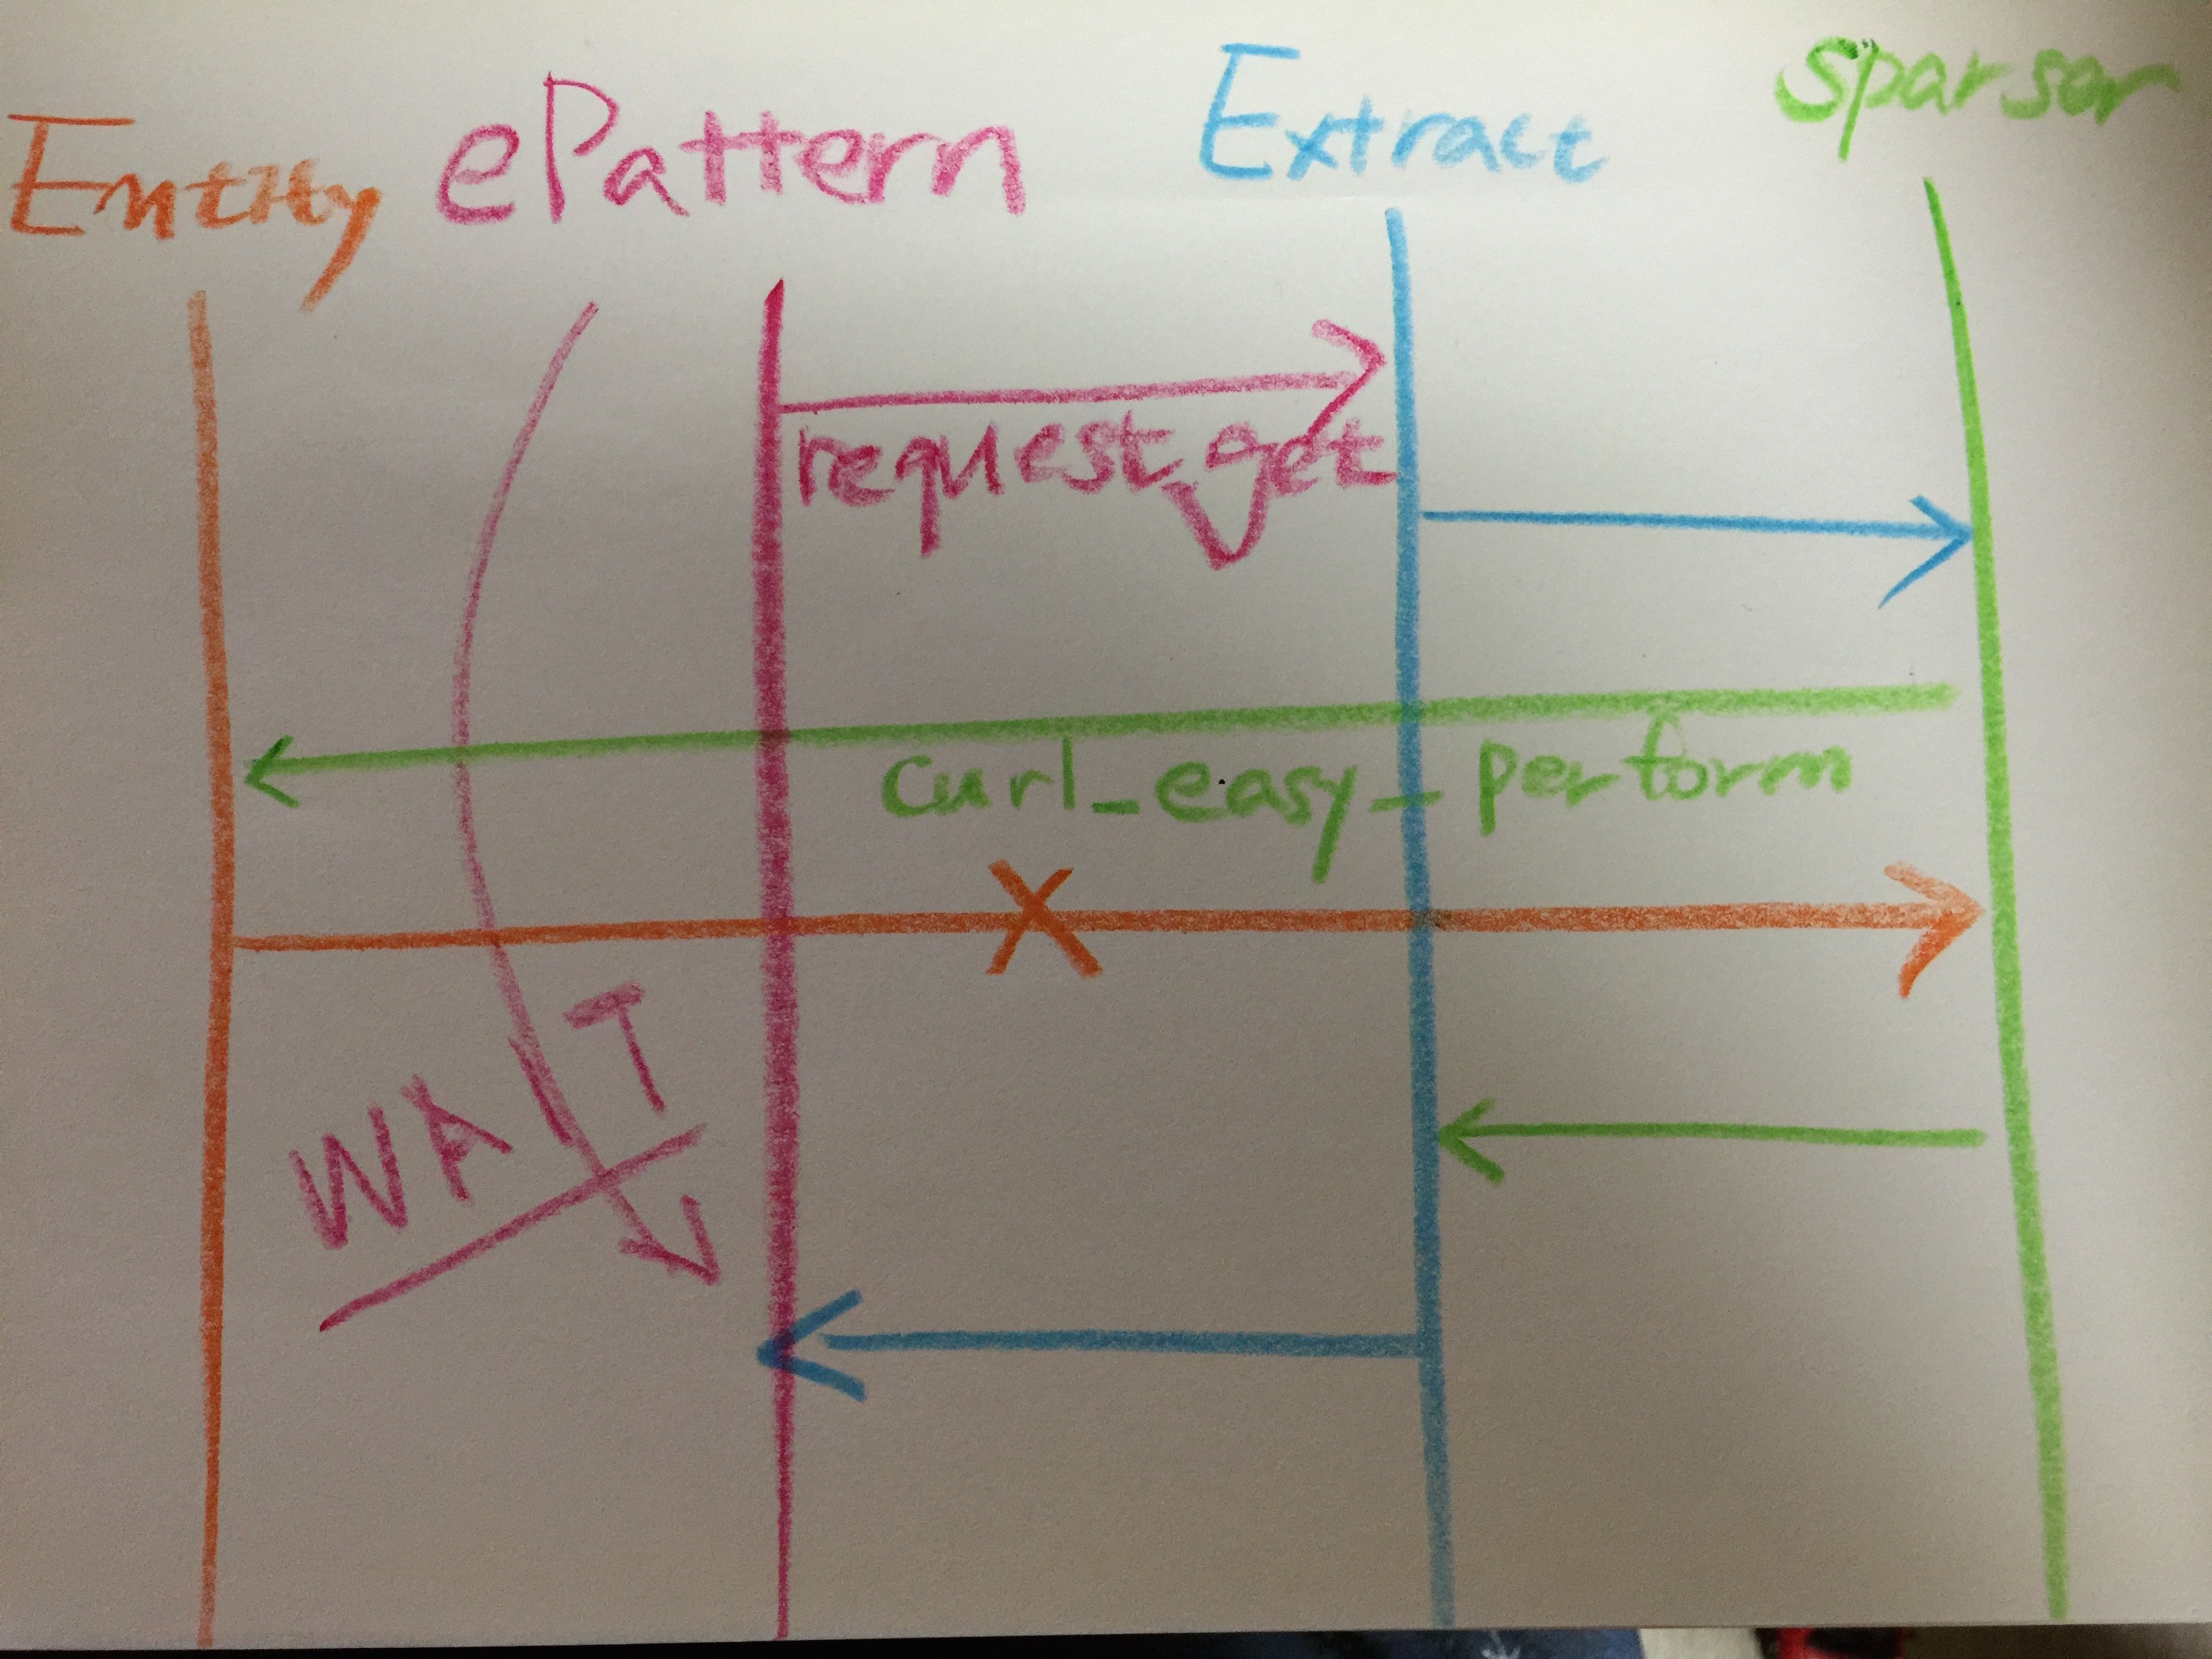 Entity ePattern Extract sparser
request_get
curl_easy_perform
X
WAIT